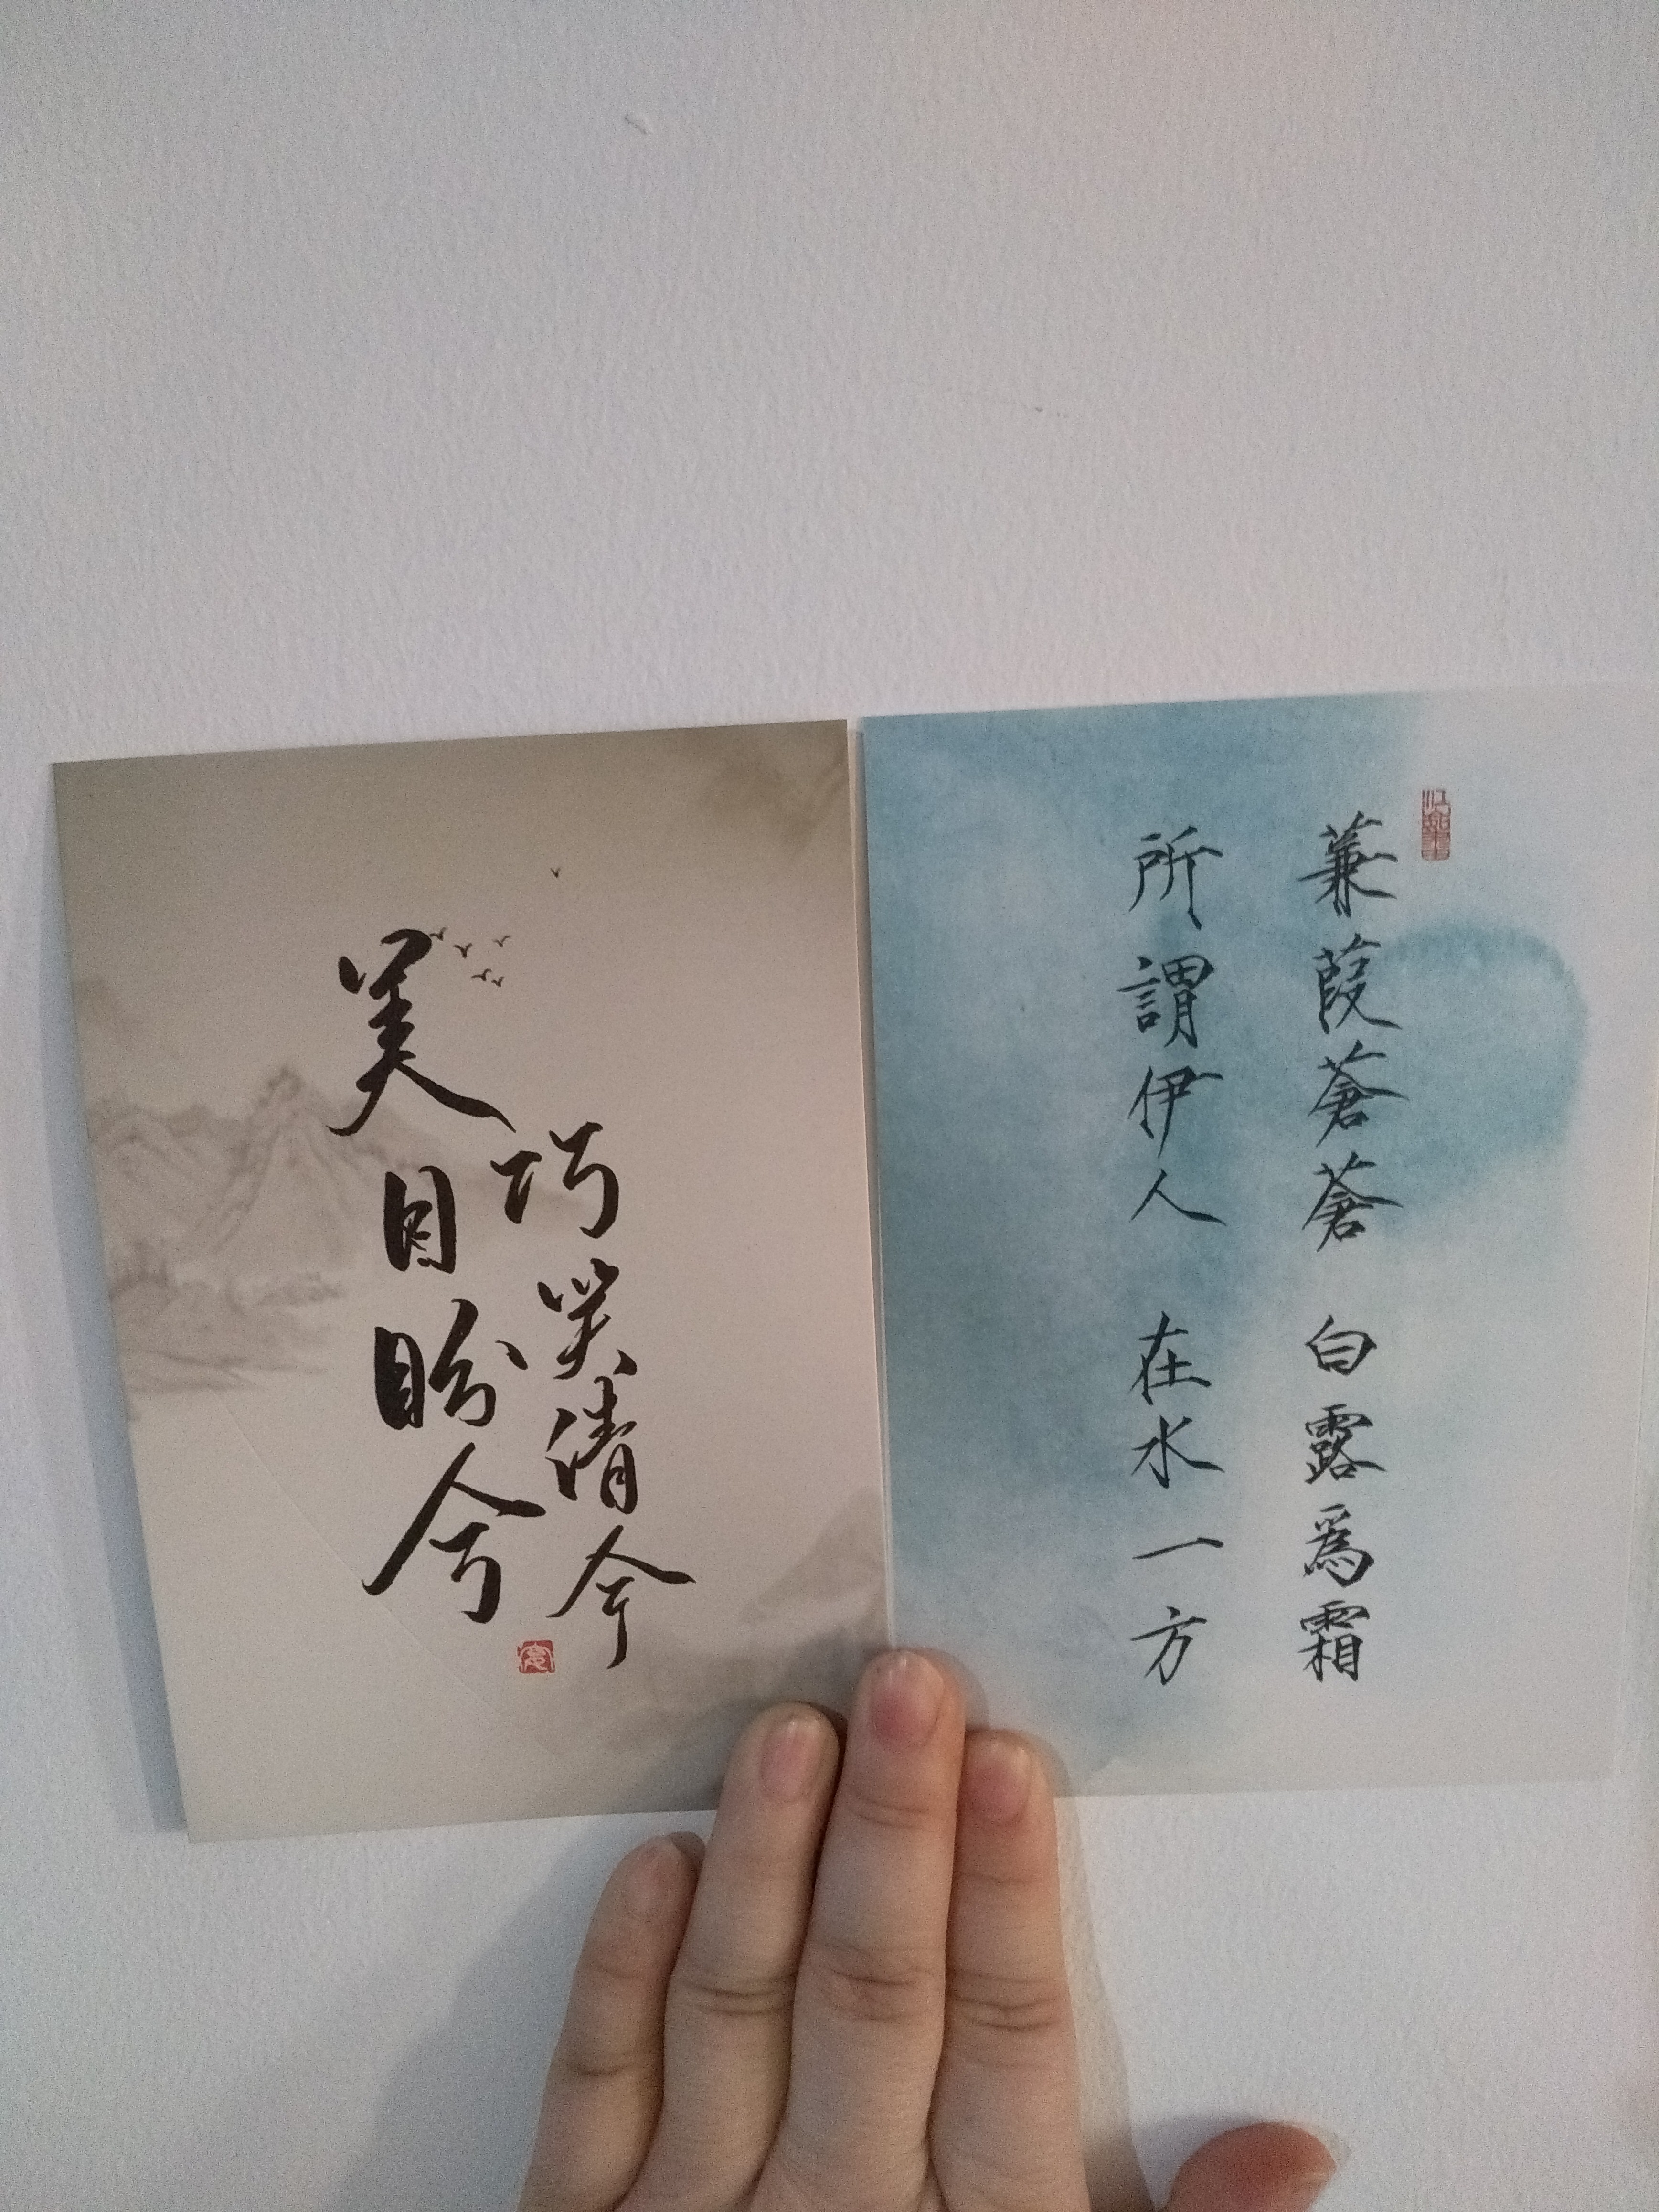 巧笑倩兮
美目盼兮
蒹葭蒼蒼 白露爲霜
所謂伊人 在水一方